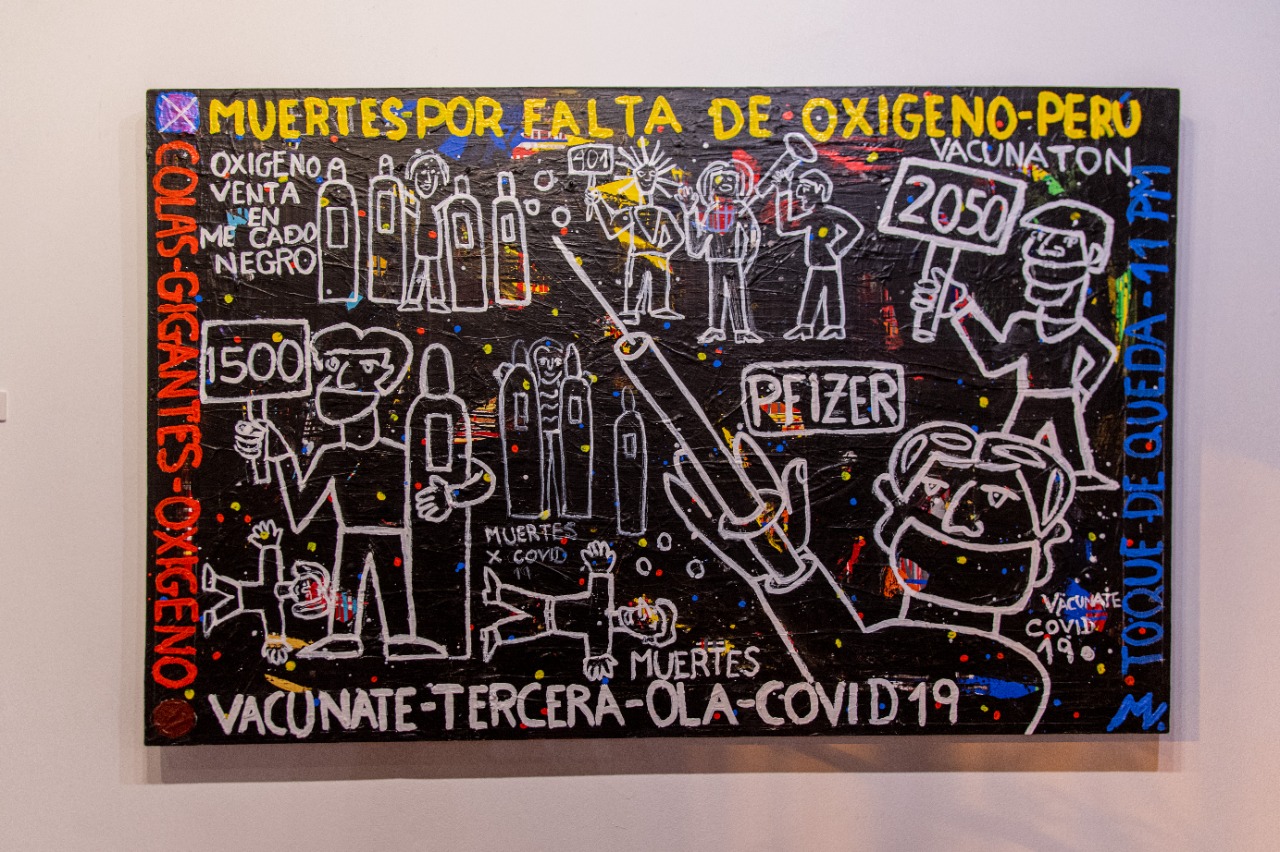 MUERTES-POR FALTA DE OXIGENO-PERÚ
COLAS-GIGANTES-OXIGENO
OXIGENO
VENTA
EN
ME CADO
NEGRO
401
VACUNATON
2050
TOQUE-DE QUEDA-11 PM
1500
PFIZER
MUERTES
X COVID
MUERTES
VACUNATE
COVID
19
VACUNATE-TERCERA-OLA-COVID 19
M.